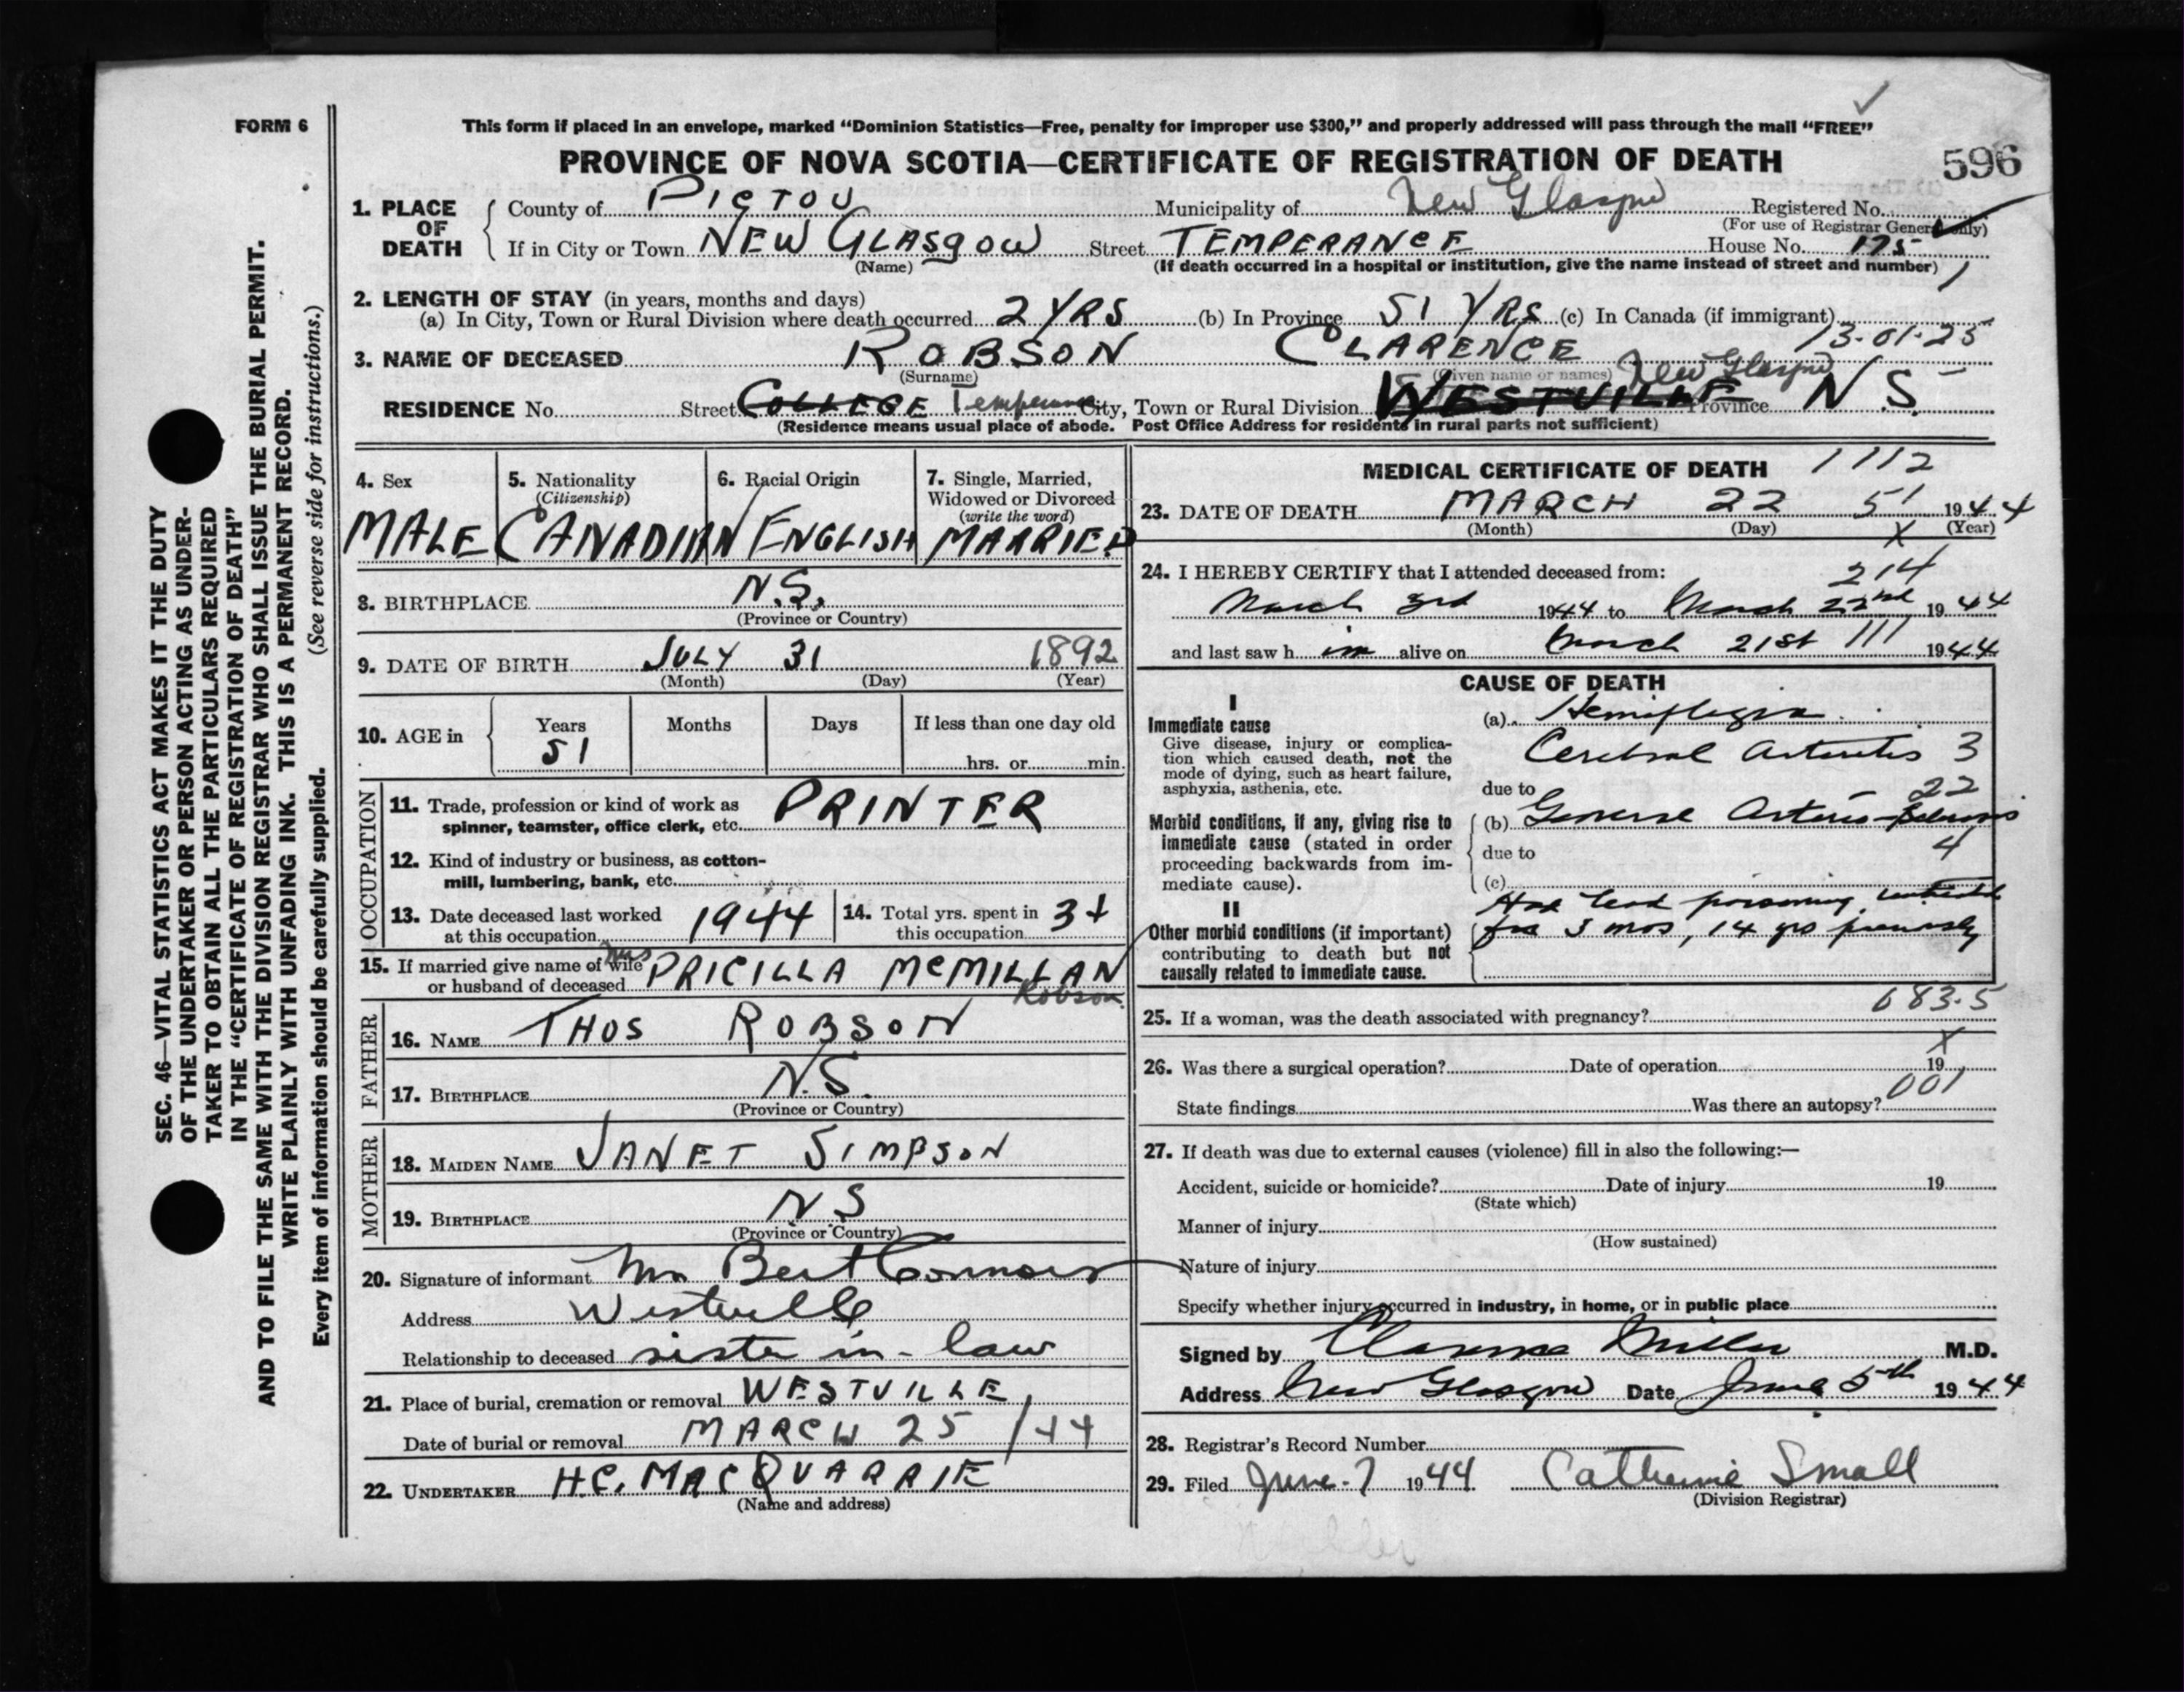 FORM 6
This form if placed in an envelope, marked “Dominion Statistics—Free, penalty for improper use $300,” and properly addressed will pass through the mail “FREE”
PROVINCE OF NOVA SCOTIA—CERTIFICATE OF REGISTRATION OF DEATH
596
1. PLACE OF DEATH
County of PICTOU Municipality of New Glasgow Registered No.
(For use of Registrar General only)
If in City or Town NEW GLASGOW Street TEMPERANCE House No. 175
(Name) (If death occurred in a hospital or institution, give the name instead of street and number) 1
2. LENGTH OF STAY (in years, months and days)
(a) In City, Town or Rural Division where death occurred 2 YRS (b) In Province 51 YRS (c) In Canada (if immigrant)
13-01-25
3. NAME OF DECEASED ROBSON CLARENCE
(Surname) (Given name or names) New Glasgow
RESIDENCE No. Street COLLEGE Temperance City, Town or Rural Division WESTVILLE Province N S.
(Residence means usual place of abode. Post Office Address for residents in rural parts not sufficient)
4. Sex
MALE
5. Nationality
(Citizenship)
CANADIAN
6. Racial Origin
ENGLISH
7. Single, Married,
Widowed or Divorced
(write the word)
MARRIED
8. BIRTHPLACE N.S.
(Province or Country)
9. DATE OF BIRTH JULY 31 1892
(Month) (Day) (Year)
10. AGE in Years Months Days If less than one day old
51 hrs. or min.
OCCUPATION
11. Trade, profession or kind of work as
spinner, teamster, office clerk, etc. PRINTER
12. Kind of industry or business, as cotton-
mill, lumbering, bank, etc.
13. Date deceased last worked
at this occupation 1944
14. Total yrs. spent in
this occupation
15. If married give name of wife
or husband of deceased Mrs PRICILLA MCMILLAN
Robson
FATHER
16. NAME THOS ROBSON
17. BIRTHPLACE N.S.
(Province or Country)
MOTHER
18. MAIDEN NAME JANET SIMPSON
19. BIRTHPLACE N S
(Province or Country)
20. Signature of informant Mrs Bert Connors
Address Westville
Relationship to deceased sister in-law
21. Place of burial, cremation or removal WESTVILLE
Date of burial or removal MARCH 25/44
22. UNDERTAKER H.C. MACQUARRIE
(Name and address)
MEDICAL CERTIFICATE OF DEATH 1112
23. DATE OF DEATH MARCH 22 51 1944
(Month) (Day) X (Year)
24. I HEREBY CERTIFY that I attended deceased from:
214
March 3rd 1944 to March 22nd 1944
and last saw h im alive on March 21st 111 1944
CAUSE OF DEATH
I
Immediate cause
Give disease, injury or complica-
tion which caused death, not the
mode of dying, such as heart failure,
asphyxia, asthenia, etc.
(a) Hemiplegia
Cerebral Arteritis 3
due to 22
Morbid conditions, if any, giving rise to
immediate cause (stated in order
proceeding backwards from im-
mediate cause).
(b) General Arterio-Sclerosis
due to 4
(c)
II
Other morbid conditions (if important)
contributing to death but not
causally related to immediate cause.
Had lead poisoning
for 3 mos, 14 yrs previously
683.5
25. If a woman, was the death associated with pregnancy?
X
26. Was there a surgical operation? Date of operation 19
001
State findings Was there an autopsy?
27. If death was due to external causes (violence) fill in also the following:—
Accident, suicide or homicide? Date of injury 19
(State which)
Manner of injury
(How sustained)
Nature of injury
Specify whether injury occurred in industry, in home, or in public place
Signed by Clarence Miller M.D.
Address New Glasgow Date June 5th 1944
28. Registrar's Record Number
29. Filed June 7 1944 Catherine Small
(Division Registrar)
SEC. 46—VITAL STATISTICS ACT MAKES IT THE DUTY
OF THE UNDERTAKER OR PERSON ACTING AS UNDER-
TAKER TO OBTAIN ALL THE PARTICULARS REQUIRED
IN THE “CERTIFICATE OF REGISTRATION OF DEATH”
AND TO FILE THE SAME WITH THE DIVISION REGISTRAR WHO SHALL ISSUE THE BURIAL PERMIT.
WRITE PLAINLY WITH UNFADING INK. THIS IS A PERMANENT RECORD.
Every item of information should be carefully supplied. (See reverse side for instructions.)